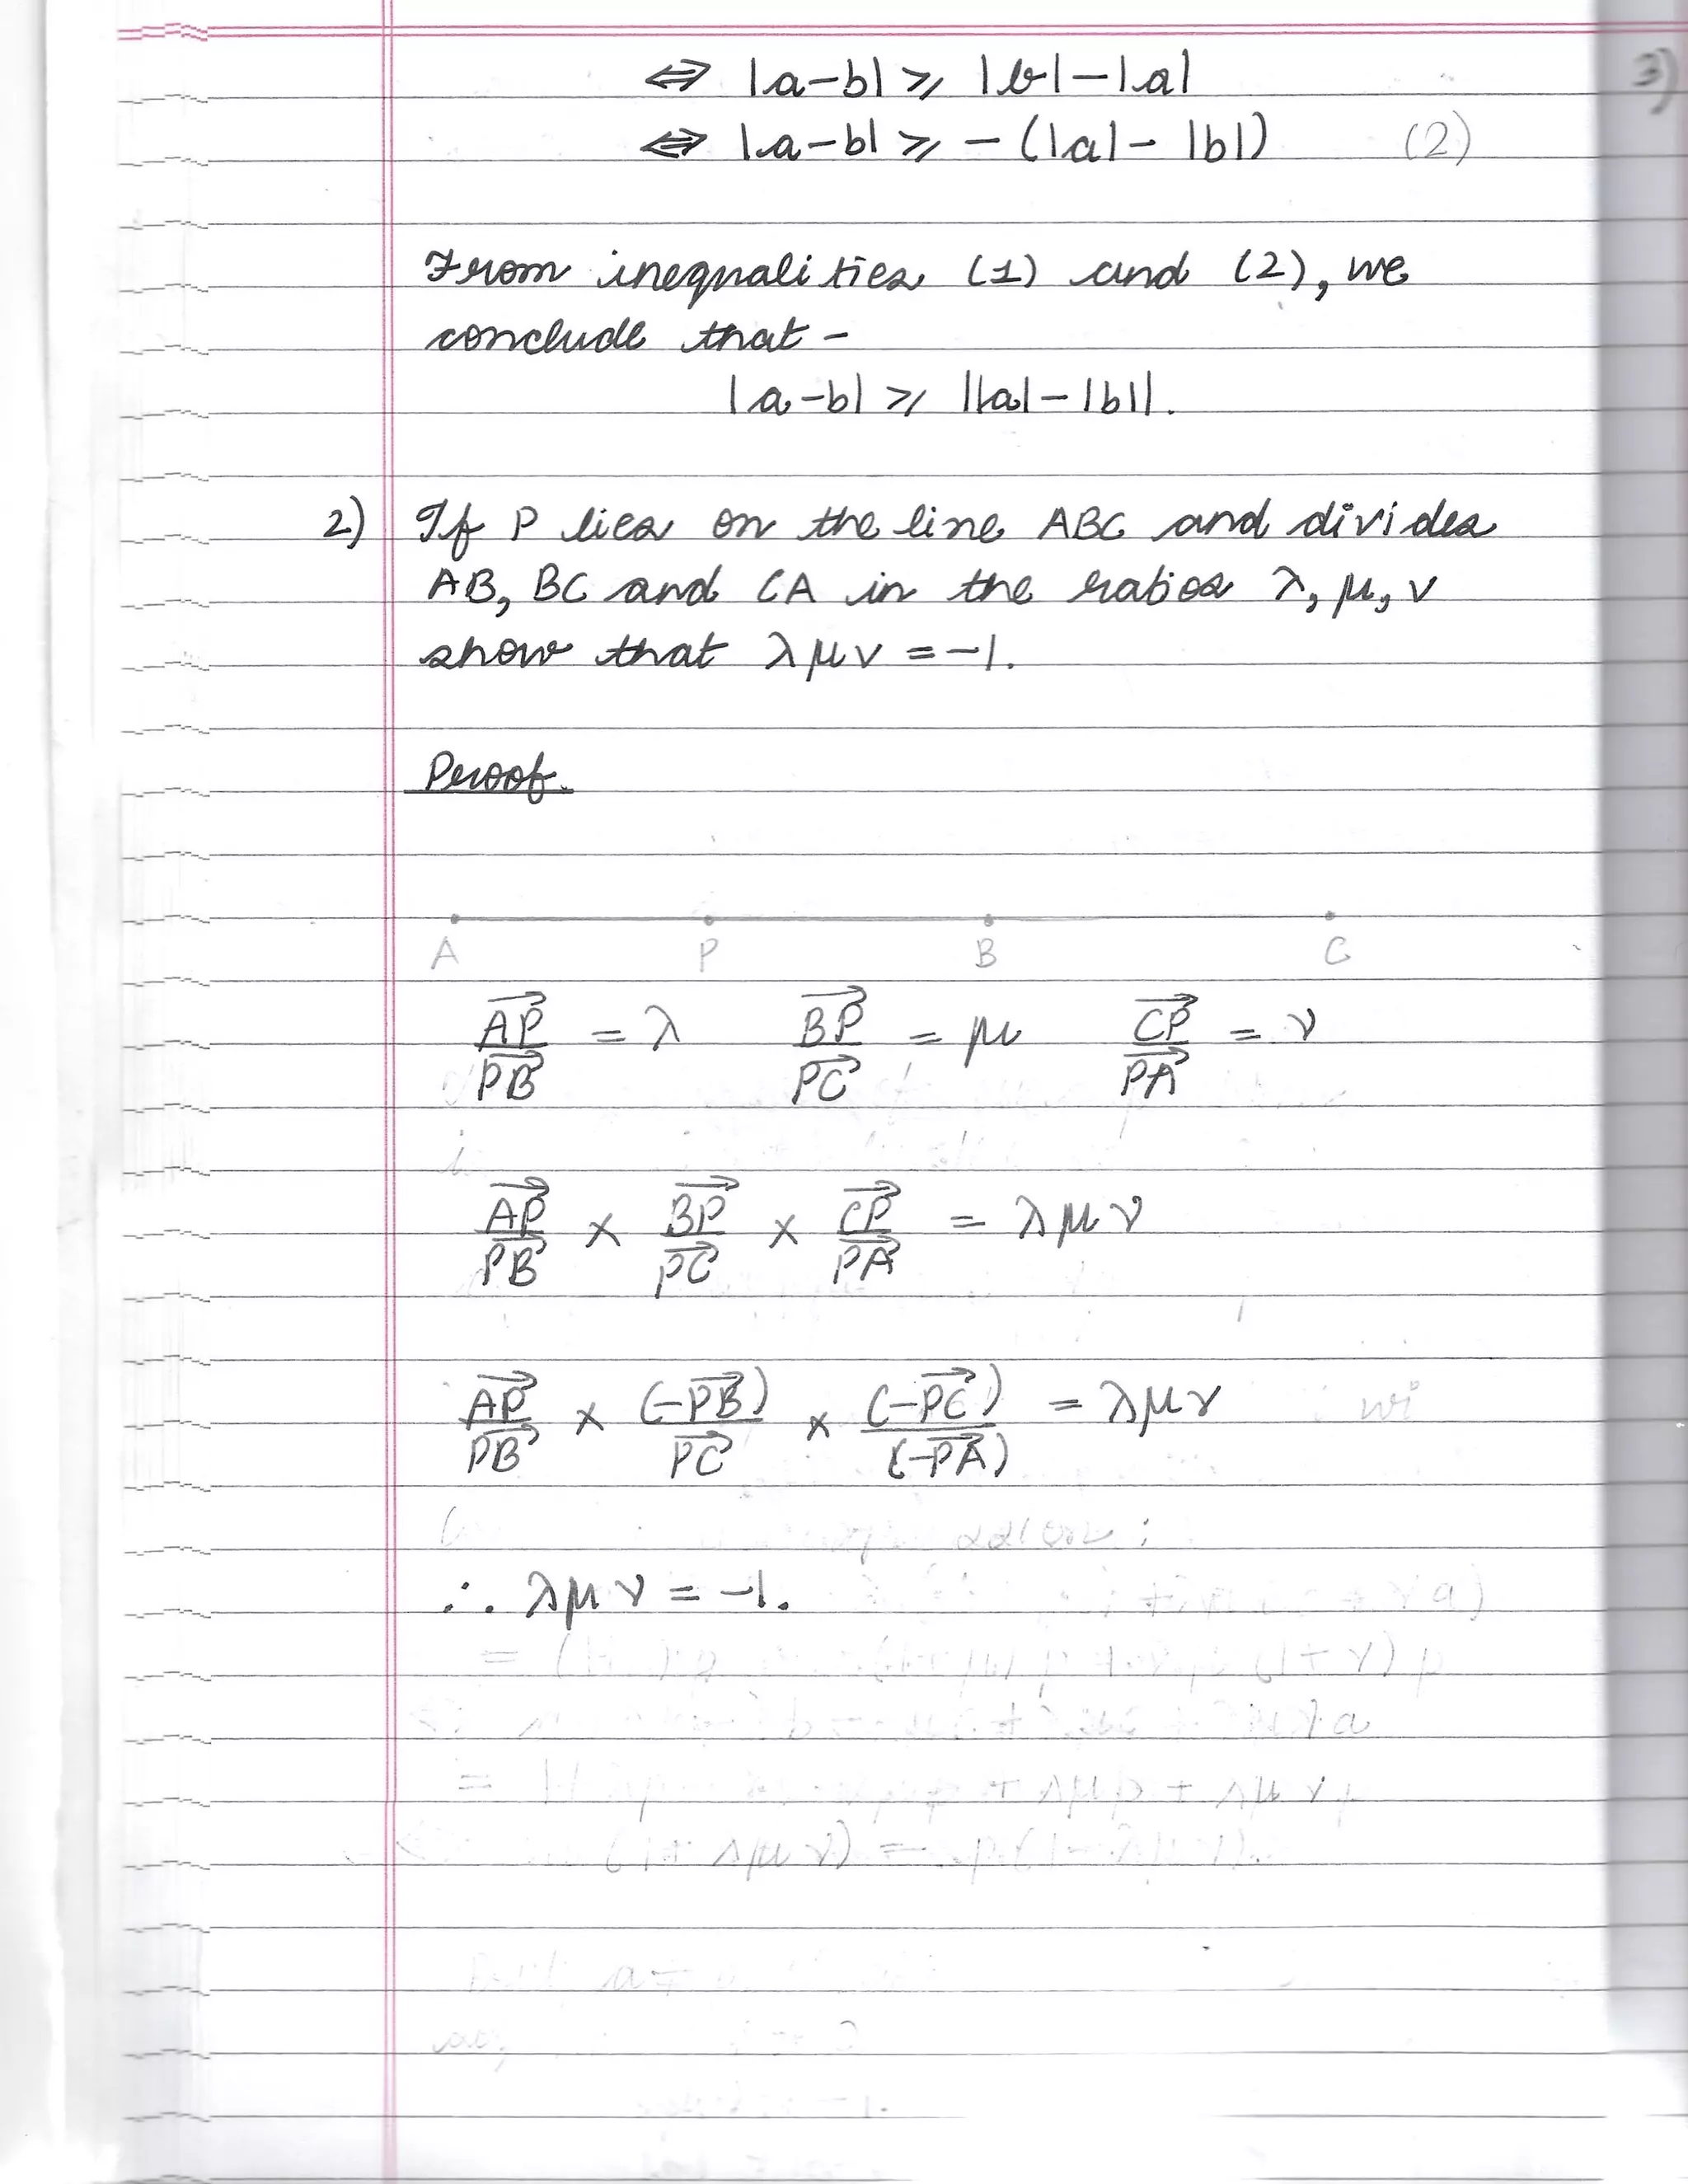 ⇔ |a-b| ⩾ |b|-|a|
3)
⇔ |a-b| ⩾ -(|a|-|b|) (2)
From inequalities (1) and (2), we
conclude that -
|a-b| ⩾ ||a|-|b||.
2) If P lies on the line ABC and divides
AB, BC and CA in the ratios λ, μ, ν
show that λμν = -1.
Proof.
A P B C
\frac{\overrightarrow{AP}}{\overrightarrow{PB}} = λ \frac{\overrightarrow{BP}}{\overrightarrow{PC}} = μ \frac{\overrightarrow{CP}}{\overrightarrow{PA}} = ν
\frac{\overrightarrow{AP}}{\overrightarrow{PB}} × \frac{\overrightarrow{BP}}{\overrightarrow{PC}} × \frac{\overrightarrow{CP}}{\overrightarrow{PA}} = λμν
\frac{\overrightarrow{AP}}{\overrightarrow{PB}} × \frac{(-\overrightarrow{PB})}{\overrightarrow{PC}} × \frac{(-\overrightarrow{PC})}{(-\overrightarrow{PA})} = λμν
∴ λμν = -1.